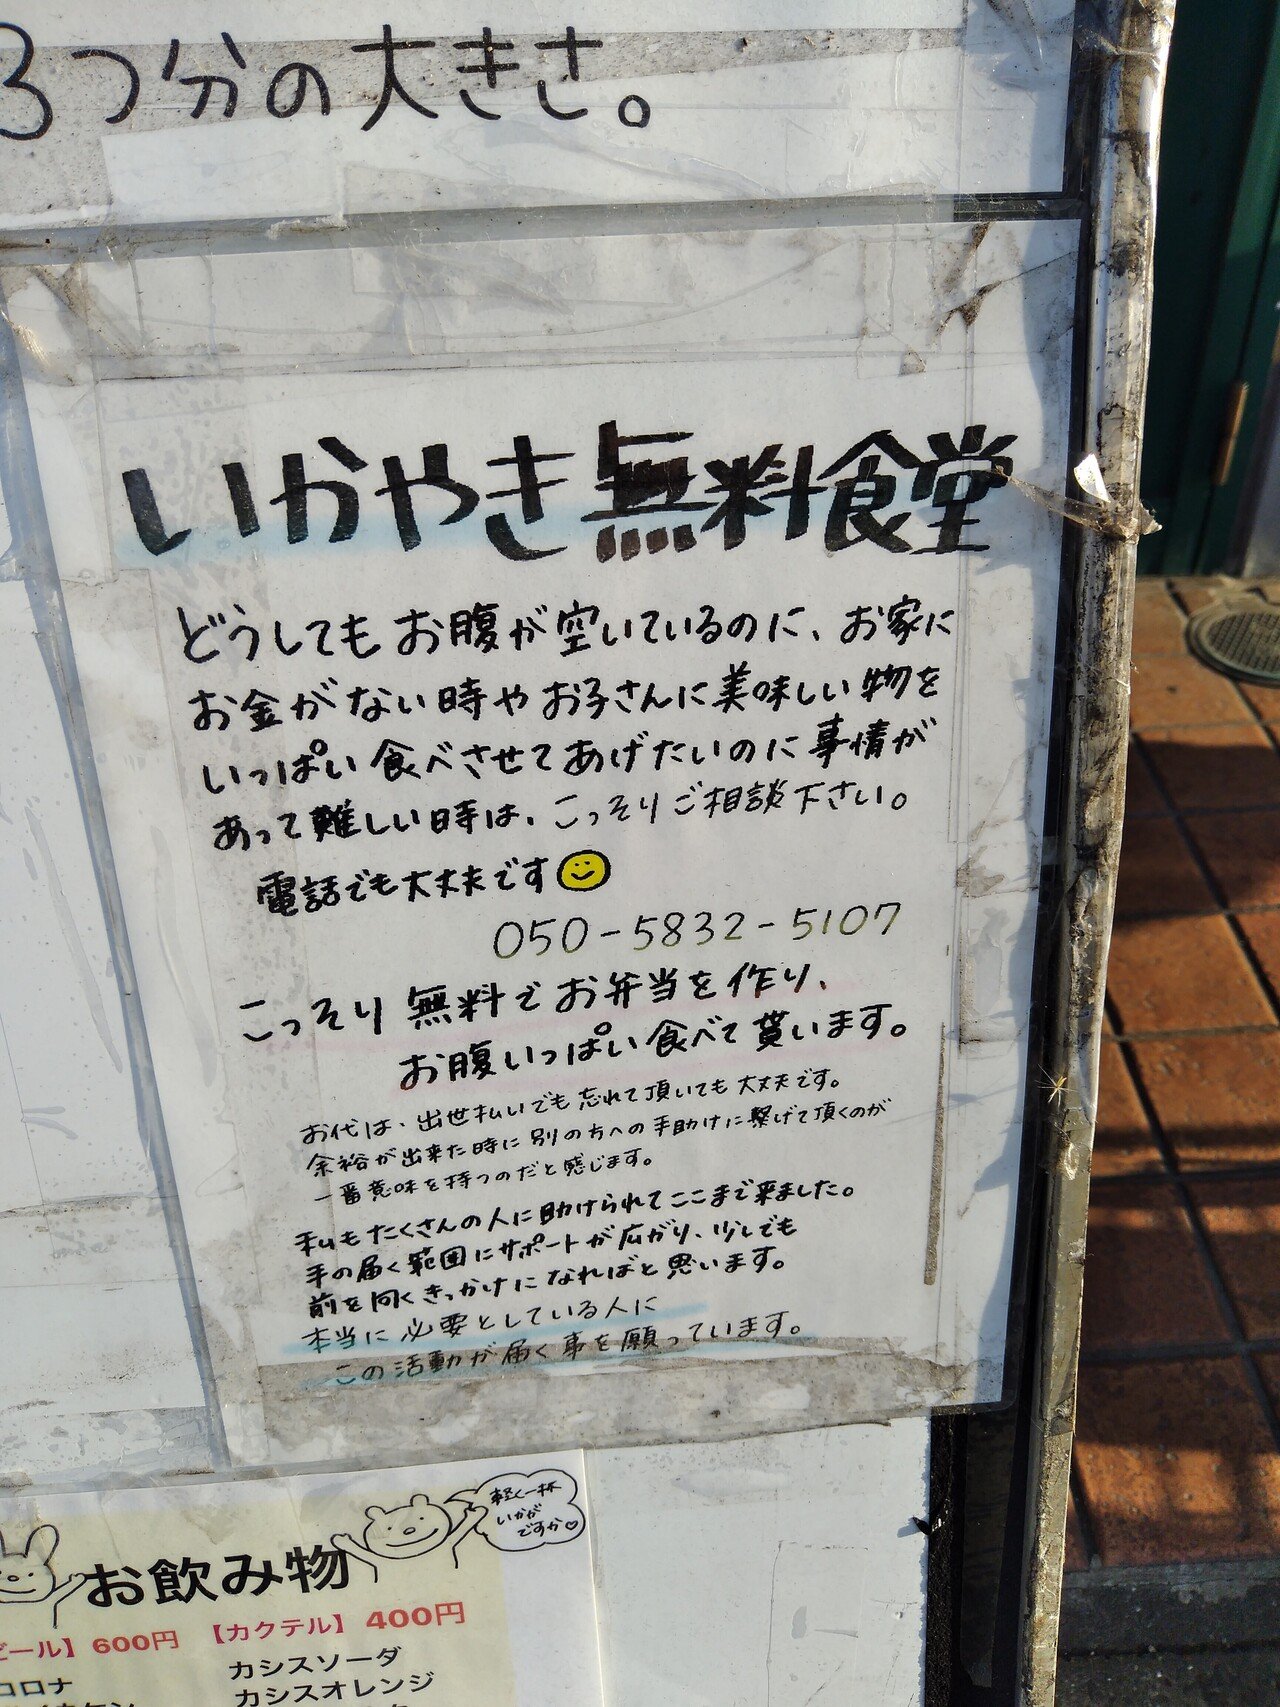 3つ分の大きさ。
いかやき無料食堂
どうしてもお腹が空いているのに、お家に
お金がない時やお子さんに美味しい物を
いっぱい食べさせてあげたいのに事情が
あって難しい時は、こっそりご相談下さい。
電話でも大丈夫です
050-5832-5107
こっそり無料でお弁当を作り、
お腹いっぱい食べて貰います。
お代は、出世払いでも忘れて頂いても大丈夫です。
余裕が出来た時に別の方への手助けに繋げて頂くのが
一番意味を持つのだと感じます。
私もたくさんの人に助けられてここまで来ました。
手の届く範囲にサポートが広がり、少しでも
前を向くきっかけになればと思います。
本当に必要としている人に
この活動が届く事を願っています。
軽く一杯
いかが
ですか♡
お飲み物
ビール】600円 【カクテル】400円
コロナ カシスソーダ
カシスオレンジ